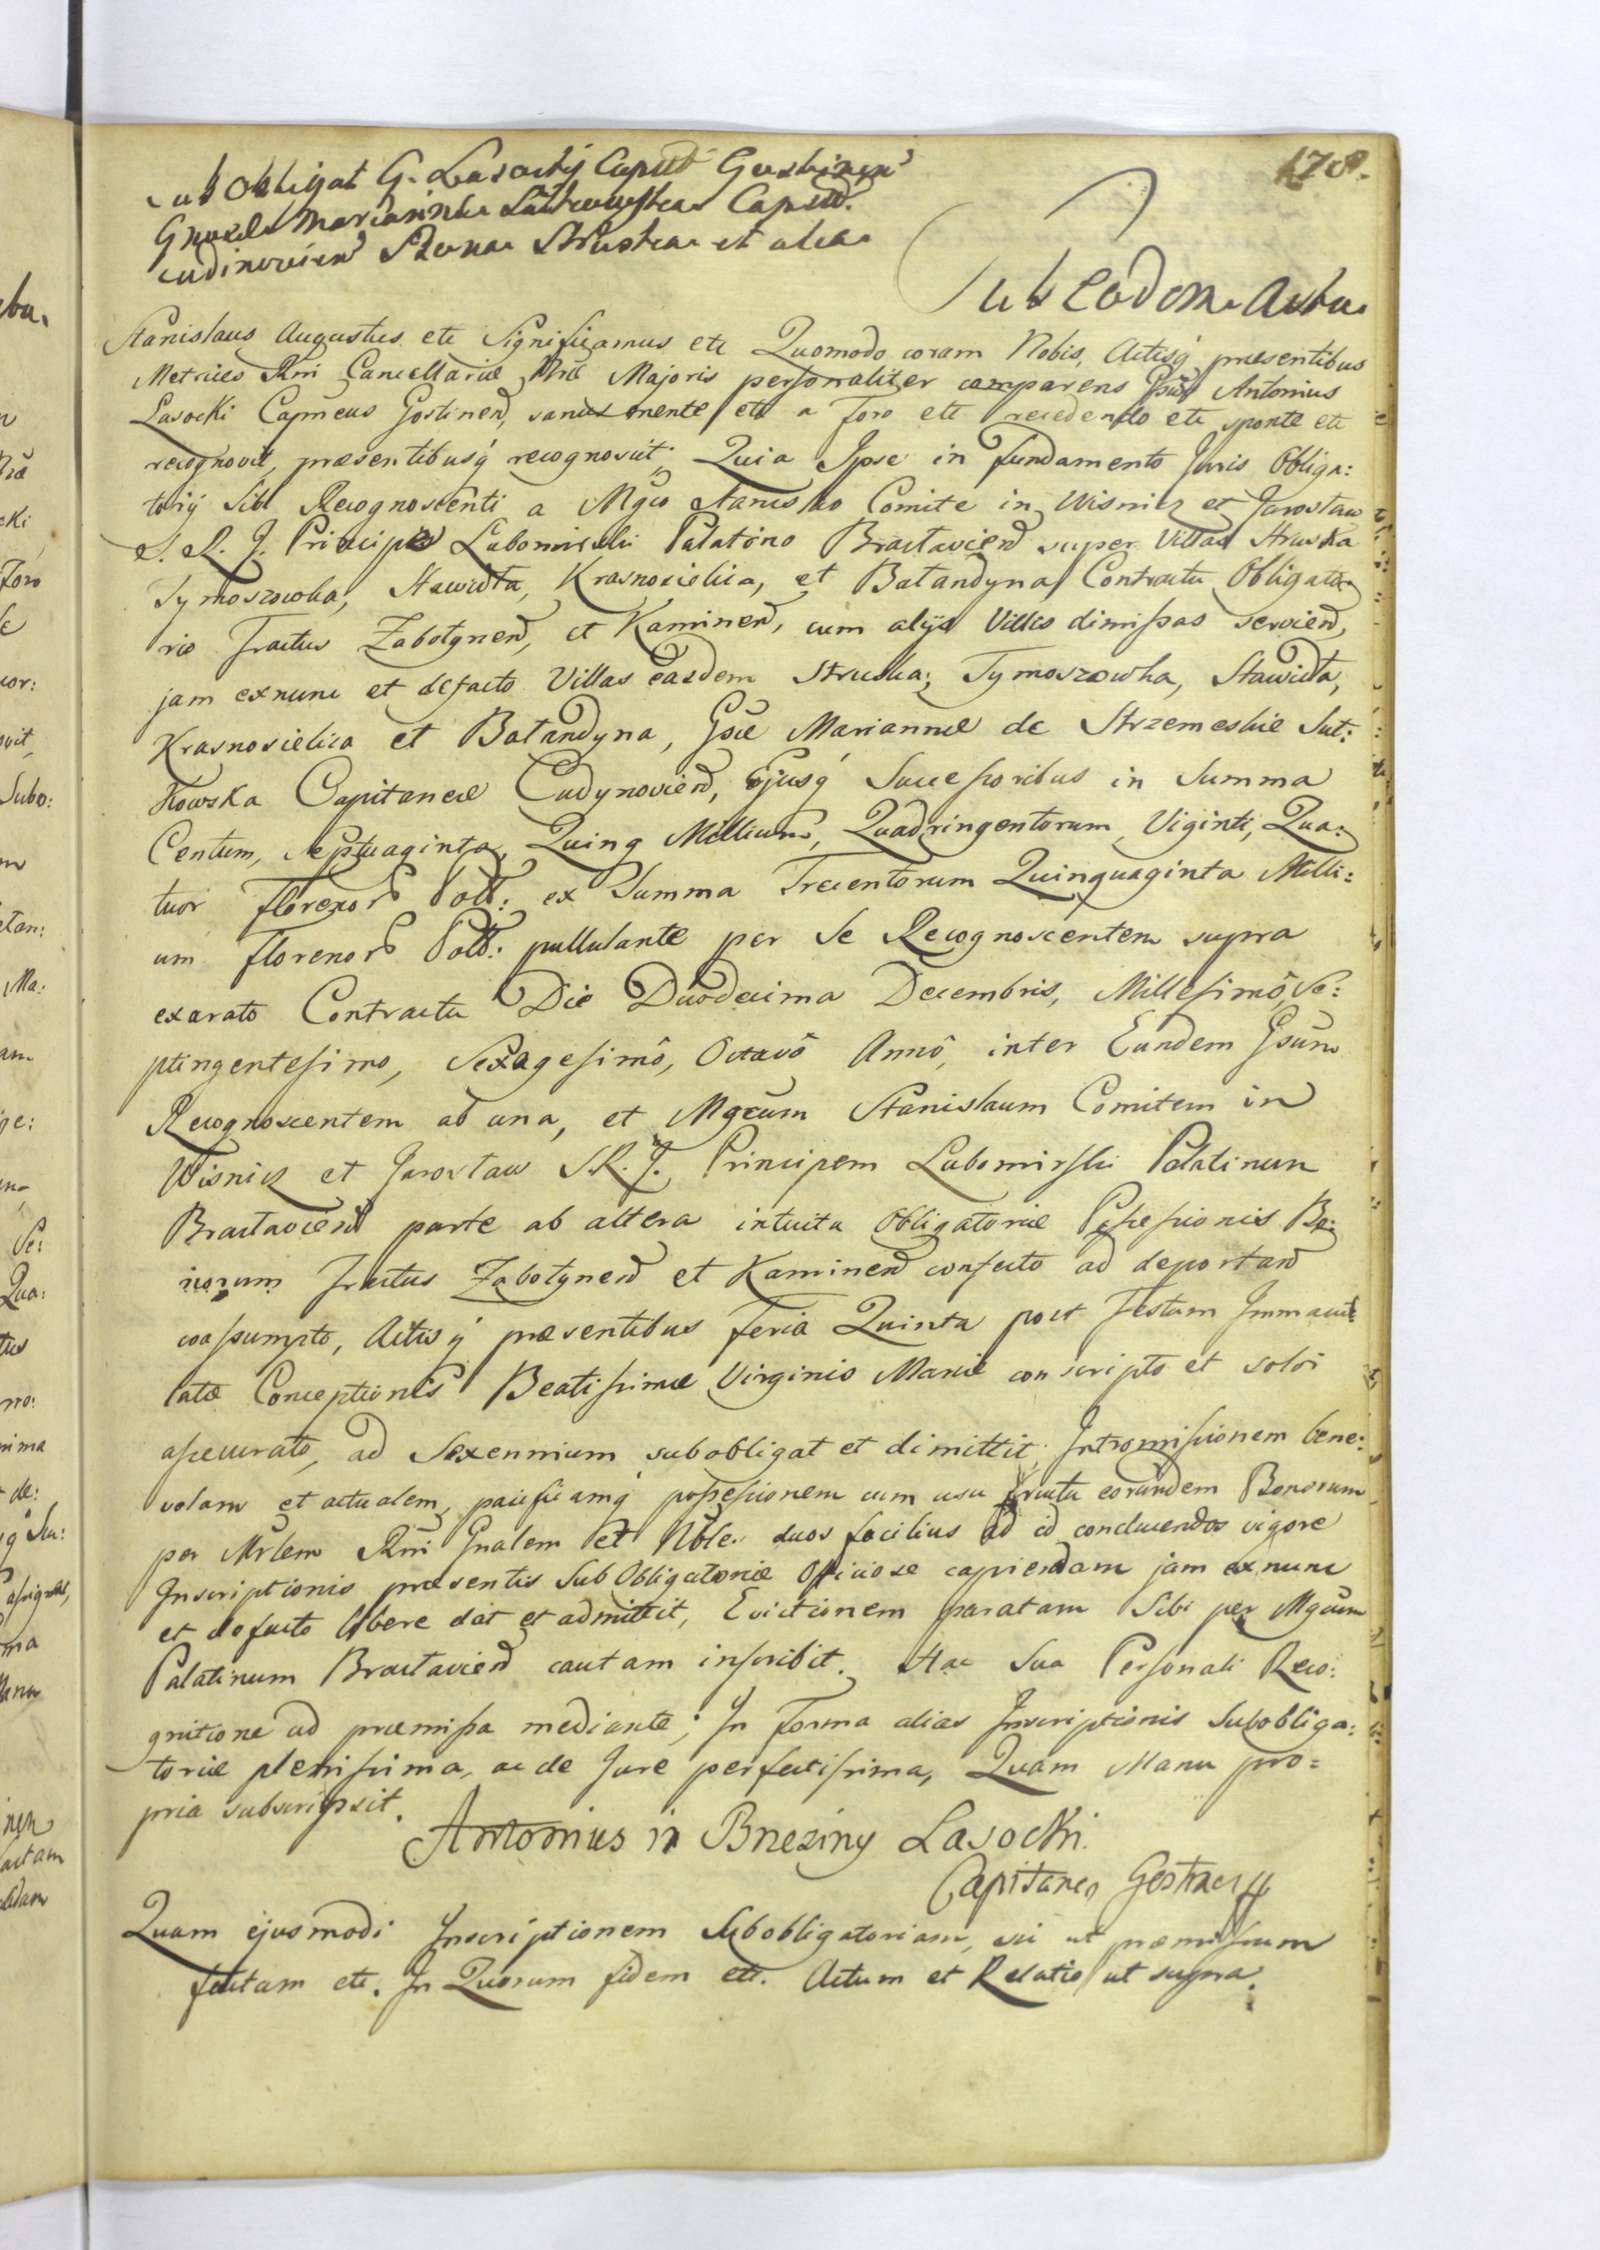 178.
Subobligat G. Lasocky Capnd Gostinen
Gnosæ Mariannæ Sutkowska Capnd.
Cudinovien Bona Struska et alia
Sub Eadem Actu
Stanislaus Augustus etc Significamus etc Quomodo coram Nobis, Actisq́ præsentibus
Metrices Rni Cancellariæ Nræ Majoris personaliter comparens Gsus Antonius
Lasocki Capneus Gostinen, sanus mente etc a Foro etc recedendo etc sponte etc
recognovit, præsentibusq́ recognoscit. Quia Ipse in fundamento Juris Obliga:
torij Sibi Recognoscenti a Mgco Stanislao Comite in Wisnicz et Jarosław
S. R. J. Principe Lubomirski Palatino Bractavien super Villas Struska
Tymoszowka, Stawidła, Krasnosielica, et Bałandyna Contractu Obligato
rio Tractus Zabotynen, et Kaminen, cum alijs Villis dimissas servien,
jam exnunc et defacto Villas easdem Struska, Tymoszowka, Stawidła,
Krasnosielica et Bałandyna, Gsæ Mariannæ de Strzemeskie Sut:
kowska Capitaneæ Cudynovien, Ejusq́ Successoribus in Summa
Centum, Septuaginta, Quinq Millium, Quadringentorum, Viginti, Qua:
tuor Florenor Poll: ex Summa Trecentorum Quinquaginta Milli:
um florenor Poll: pullulante per Se Recognoscentem supra
exarato Contractu Die Duodecima Decembris, Millesimô, Se:
ptingentesimo, Sexagesimô, Octavô Annô, inter Eundem Gsum
Recognoscentem ab una, et Mgcum Stanislaum Comitem in
Wisnicz et Jarosław S. R. J. Principem Lubomirski Palatinum
Bractavien parte ab altera intuitu Obligatoriæ Possessionis Bo:
norum Tractus Zabotynen et Kaminen confecto ad deportan
coassumpto, Actisq́ præsentibus Feria Quinta post Festum Immacu
latæ Conceptionis Beatissimæ Virginis Mariæ conscripto et solvi
assecurato, ad Sexennium subobligat et dimittit. Intromissionem bene:
volam et actualem, pacificamq́ possessionem cum usu fructu eorundem Bonorum
per Mrlem Rni Gnalem et Nble. duos facilius ad id conducendos vigore
Inscriptionis præsentis SubObligatoriæ Officiose capiendam jam exnunc
et defacto libere dat et admittit, Evictionem paratam Sibi per Mgcum
Palatinum Bractavien cautam inscribit. Hac Sua Personali Reco:
gnitione ad præmissa mediante; In Forma alias Inscriptionis Subobliga:
toriæ plenissima, ac de Jure perfectissima, Quam Manu pro=
pria subscripsit.
Antonius in Brzeziny Lasocki.
Capitaneo Gostinen
Quam ejusmodi Inscriptionem Subobligatoriam, sic ut præmissum
factam etc. In Quorum fidem etc. Actum et Relatio ut supra.